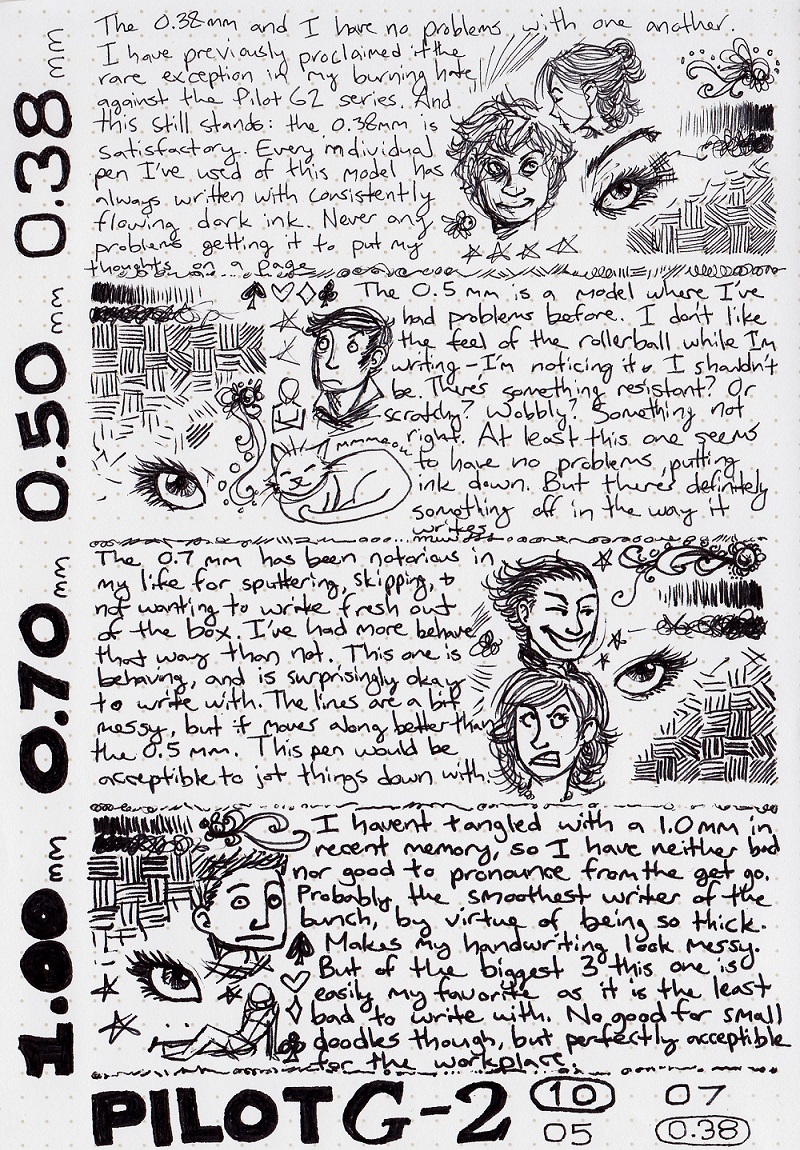 0.38 mm
The 0.38mm and I have no problems with one another.
I have previously proclaimed it the
rare exception in my burning hate
against the Pilot G2 series. And
this still stands: the 0.38mm is
satisfactory. Every individual
pen I've used of this model has
always written with consistently
flowing dark ink. Never any
problems getting it to put my
thoughts on a page.
0.50 mm
The 0.5mm is a model where I've
had problems before. I don't like
the feel of the rollerball while I'm
writing - I'm noticing it. I shouldn't
be. There's something resistant? Or
scratchy? Wobbly? Something not
right. At least this one seems
to have no problems putting
ink down. But there's definitely
something off in the way it
writes.
mmmeow
0.70 mm
The 0.7 mm has been notorious in
my life for sputtering, skipping, &
not wanting to write fresh out
of the box. I've had more behave
that way than not. This one is
behaving, and is surprisingly okay
to write with. The lines are a bit
messy, but it moves along better than
the 0.5 mm. This pen would be
acceptible to jot things down with.
1.00 mm
I havent tangled with a 1.0mm in
recent memory, so I have neither bad
nor good to pronounce from the get go.
Probably the smoothest writer of the
bunch, by virtue of being so thick.
Makes my handwriting look messy.
But of the biggest 3 this one is
easily my favorite as it is the least
bad to write with. No good for small
doodles though, but perfectly acceptible
for the workplace.
PILOT G-2
10 07
05 0.38